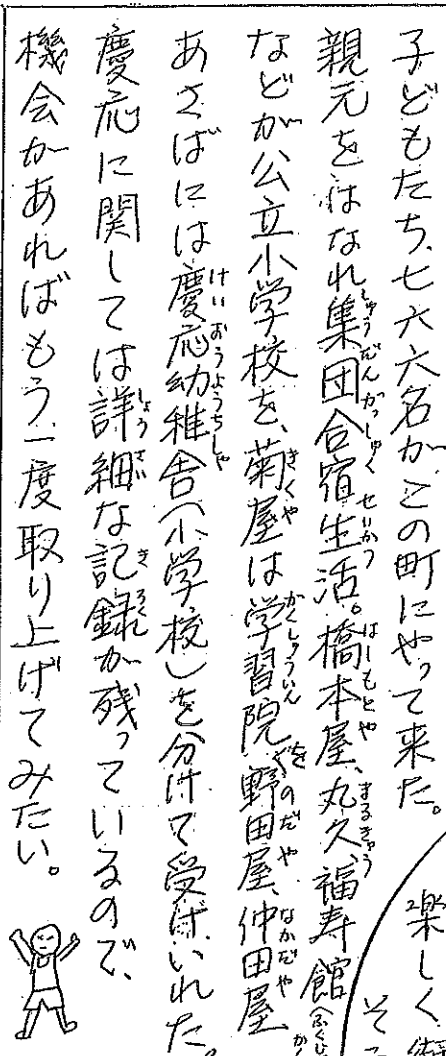 子どもたち、七六六名が、この町にやって来た。
親元をはなれ集団合宿生活。橋本屋、丸久、福寿館
などが公立小学校を、菊屋は学習院を野田屋、仲田屋
あさばには慶応幼稚舎(小学校)を分けて受けいれた。
慶応に関しては詳細な記録が残っているので、
機会があればもう一度取り上げてみたい。
楽しく